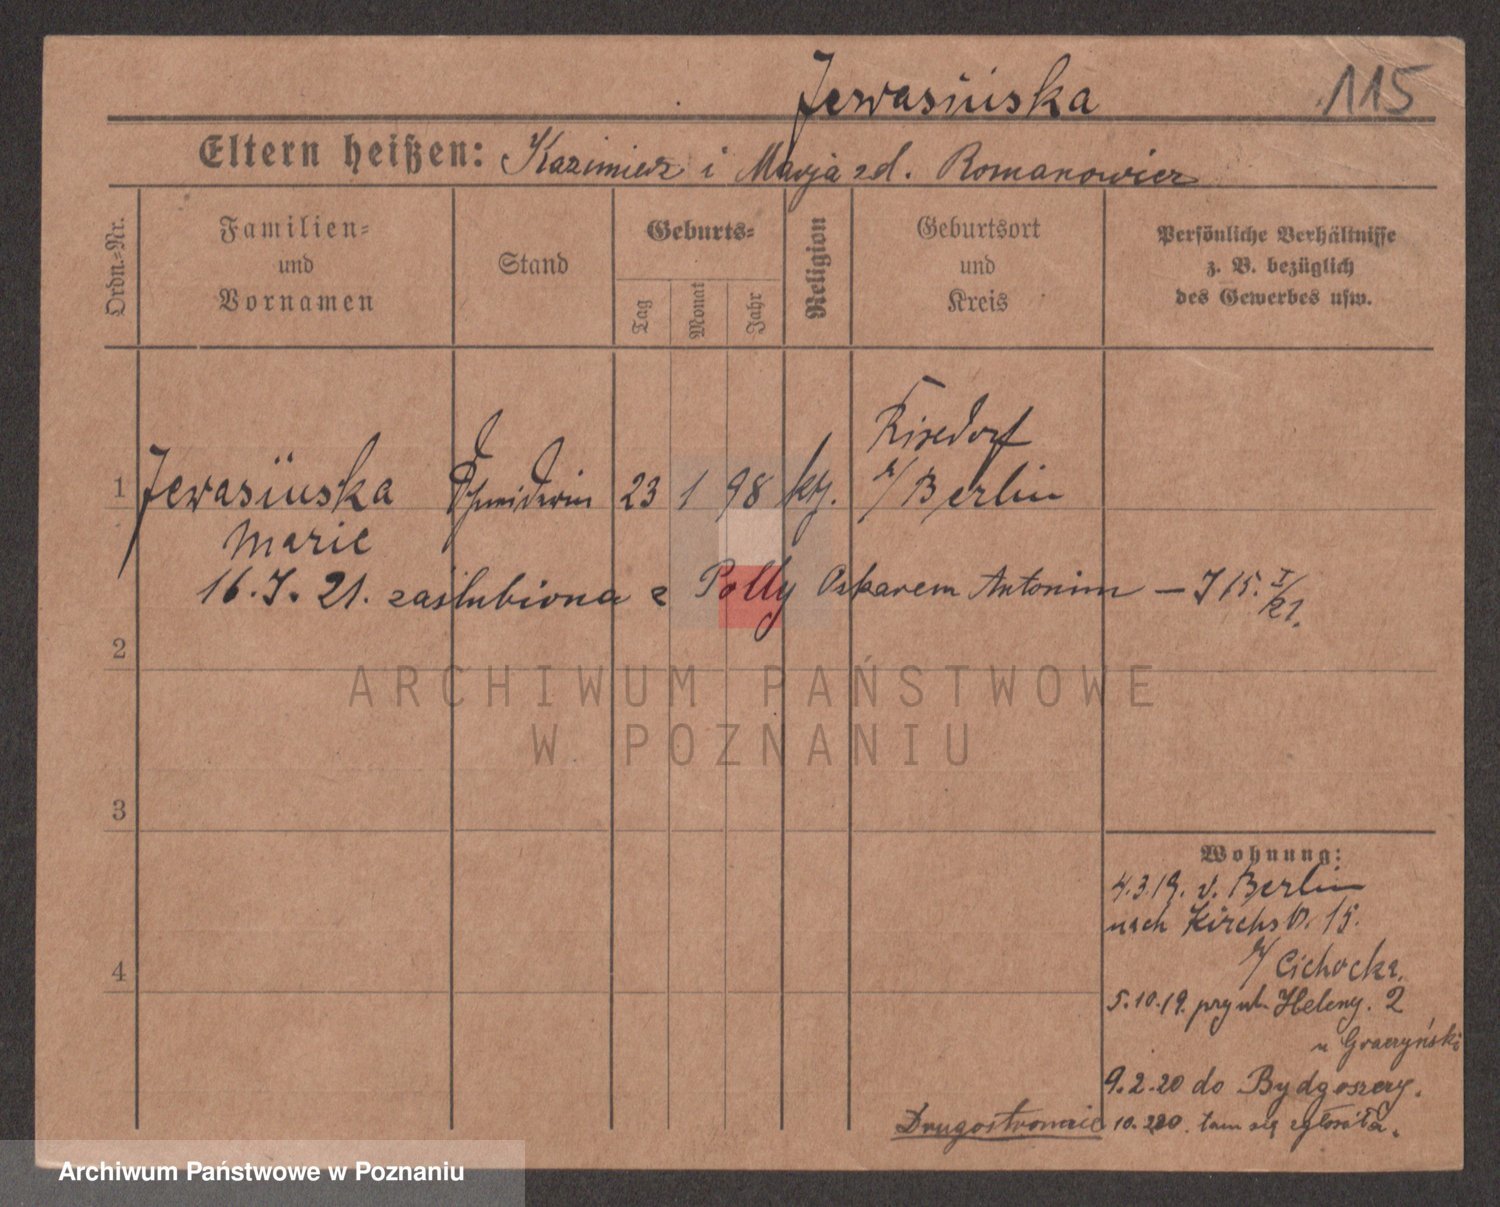 Jewasińska 115
Eltern heißen: Kazimierz i Marja zd. Romanowicz
Ordn.-Nr.
Familien-
und
Vornamen
Stand
Geburts-
Tag
Monat
Jahr
Religion
Geburtsort
und
Kreis
Persönliche Verhältnisse
z. B. bezüglich
des Gewerbes usw.
1 Jewasińska Schneiderin 23 1 98 kth. Rixdorf
b/ Berlin
Marie
16. I. 21. zaślubiona z Polly Oskarem Antonim – I 15. I/21.
2
ARCHIWUM PAŃSTWOWE
W POZNANIU
3
4
Wohnung:
4.3.19. v. Berlin
nach Kirchstr. 15.
b/ Cichocka.
5.10.19. przy ul. Heleny. 2
u Graczyński
9.2.20 do Bydgoszczy.
Drugostronnie 10.2.20. tam się zgłosiła.
Archiwum Państwowe w Poznaniu